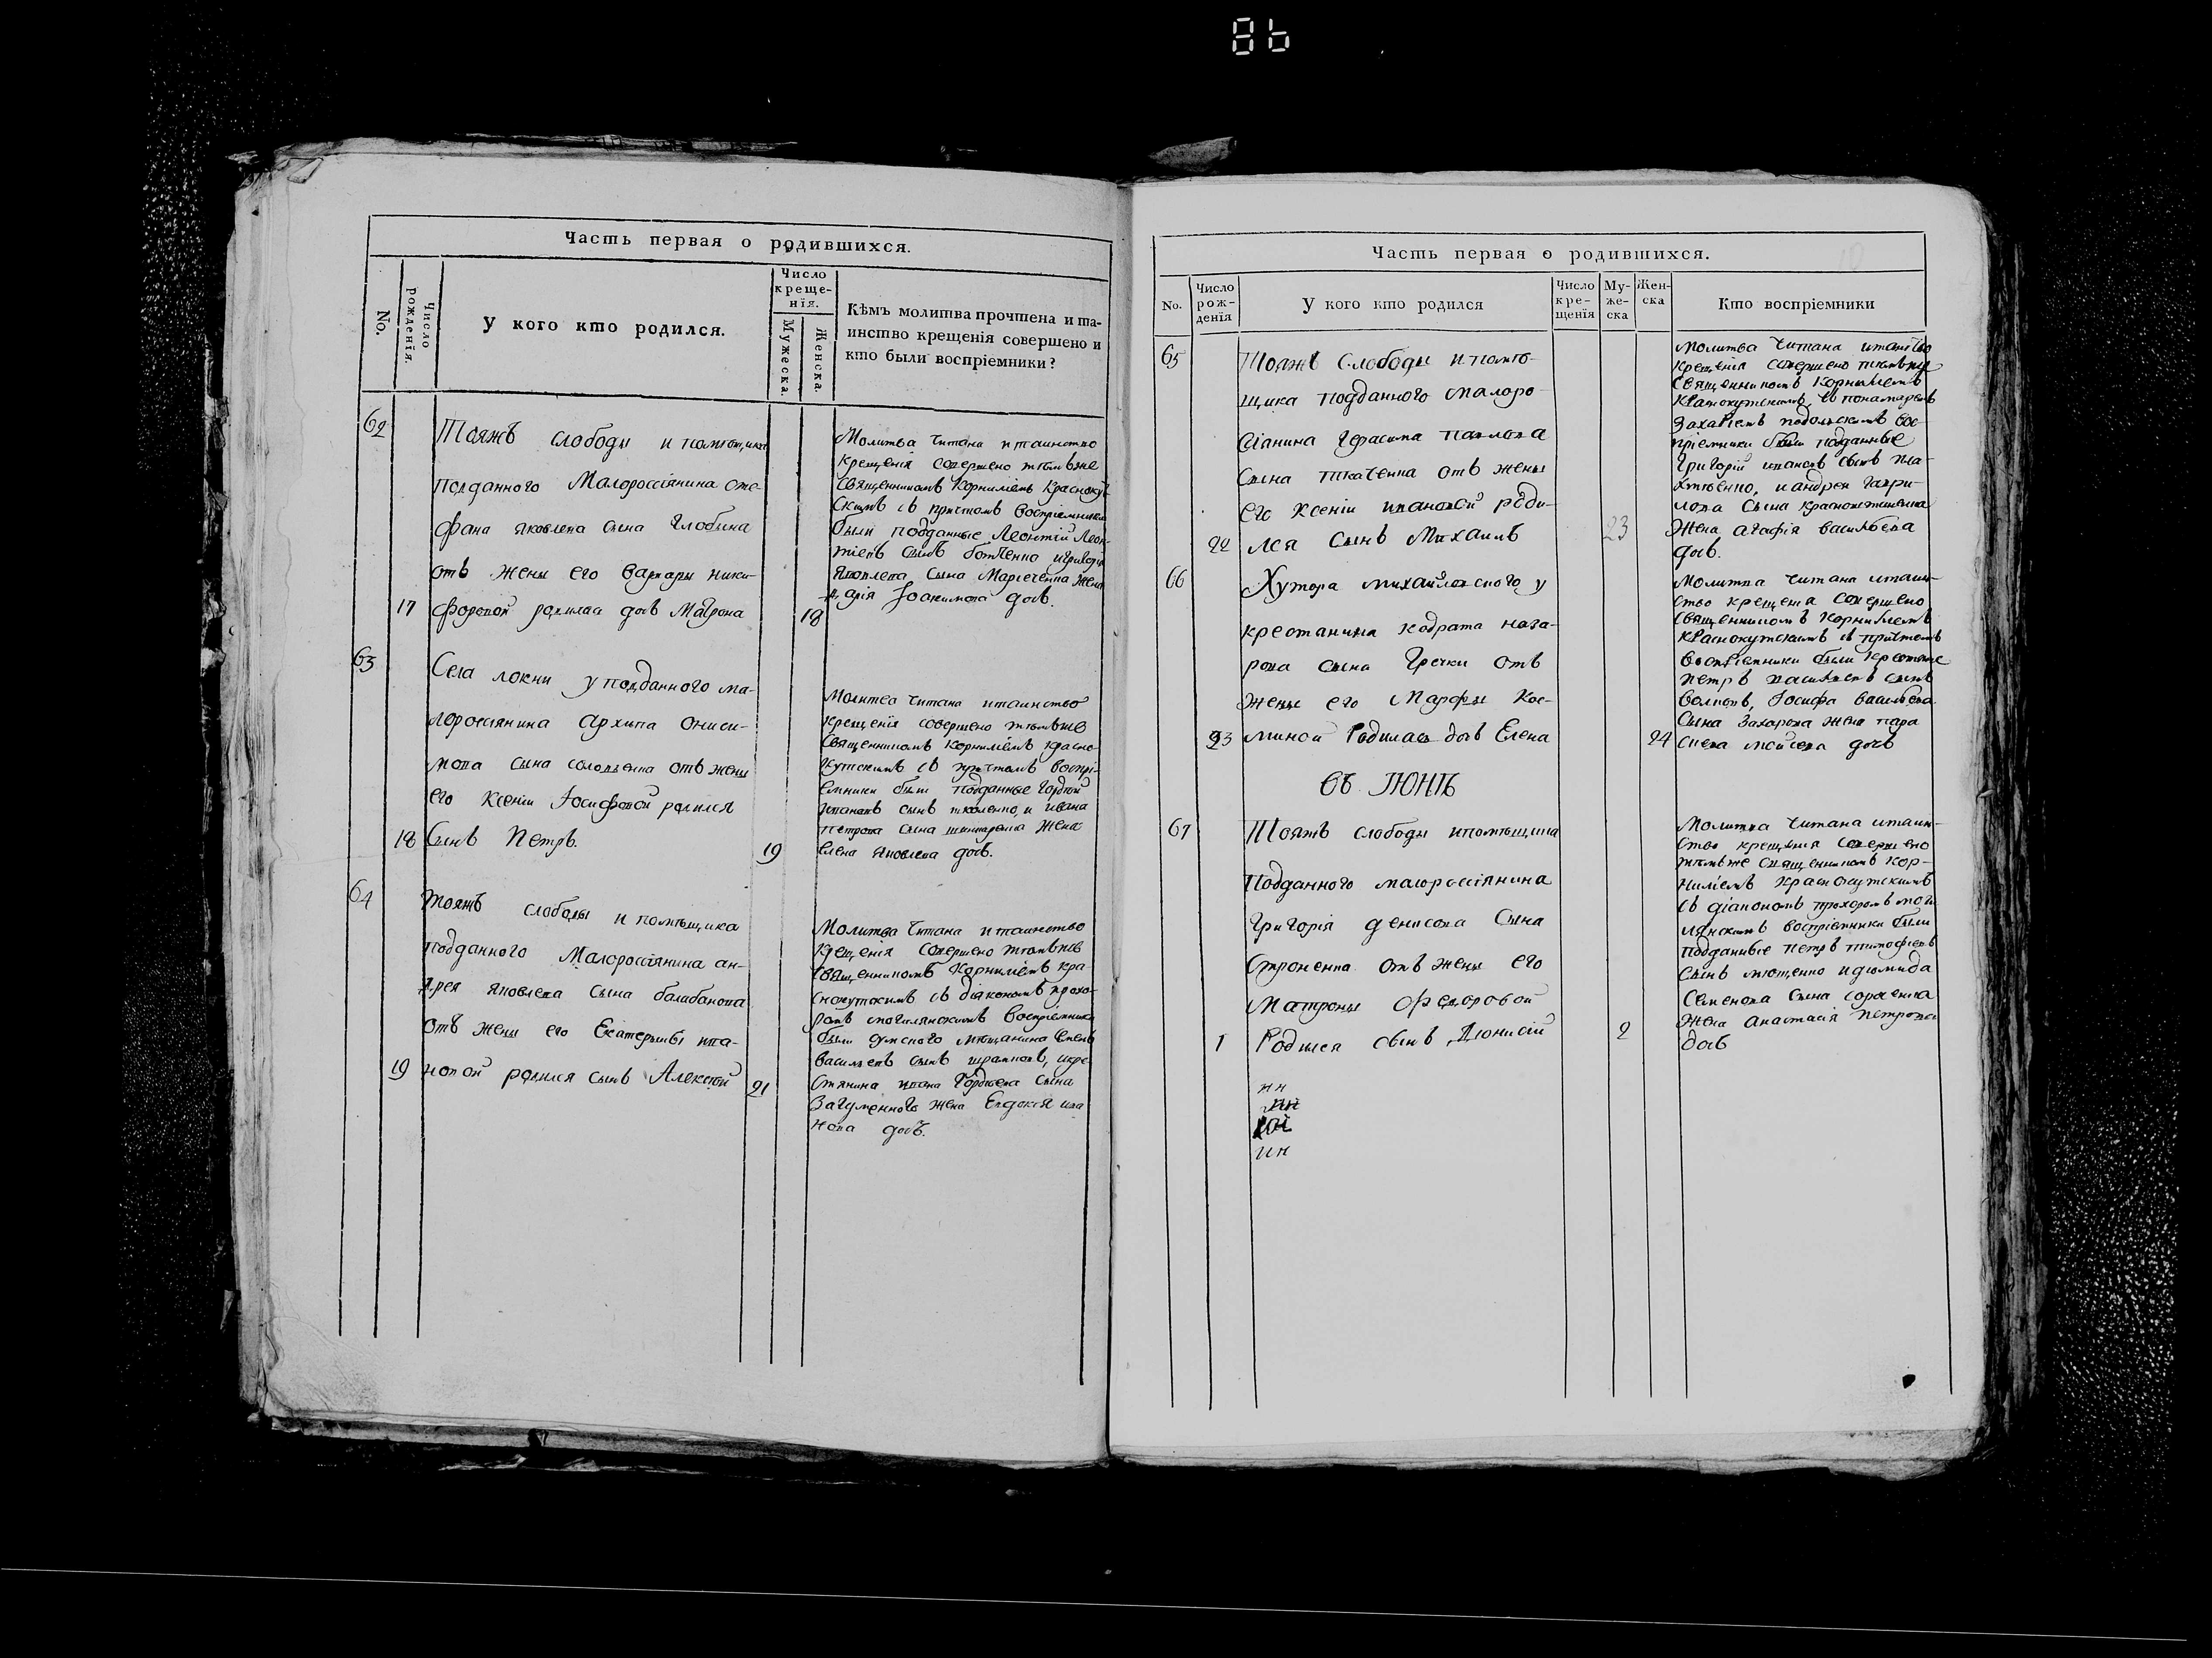 86
Часть первая о родившихся.
No.
Число рожденїя.
У кого кто родился.
Число
креще-
нїя.
Мужеска.
Женска.
Кѣмъ молитва прочтена и та-
инство крещенія совершено и
кто были воспріемники?
62
Тояжъ слободы и помѣщика
подданного Малороссіянина сте-
фана яковлева сына Глобина
отъ жены его варвары ники-
17 форовой родилась дочь Матрона
18
Молитва читана и таинство
крещенія совершено тѣмъже
Священникомъ Корниліемъ Краснокут
скимъ съ причтомъ воспріемники
были подданные Леонтій Леон-
тіевъ сынъ
Яковлева сына Марченка жена
Марія Іоакимова дочь.
63
Села локни у подданного ма-
лоросіянина архипа ониси-
мова сына соловьенка отъ жены
его Ксеніи Іосифовой родился
18 Сынъ Петръ.
19
Молитва читана и таинство
крещенія совершено тѣмъже
Священникомъ Корниліемъ красно-
кутскимъ съ причтомъ воспрі-
емники были подданные Гордѣй
ивановъ сынъ ткаченко, и ивана
петрова сына жена
елена яковлева дочь.
64
тояжъ слободы и помѣщика
подданного Малороссіянина ан-
дрея яковлева сына балабанова
отъ жены его Екатерины ива-
19 новой родился сынъ Алексѣй
21
Молитва читана и таинство
крещенія совершено тѣмъже
священникомъ Корниліемъ кра-
снокутскимъ съ діакономъ прохо-
ромъ могилянскимъ воспріемники
были сумского мѣщанина
васильевъ сынъ и кре-
стянина ивана Гордѣева сына
Загуменного жена Евдокія ива
нова дочь.
Часть первая о родившихся.
No.
Число
рож-
денїя
У кого кто родился
Число
кре-
щенїя
Му-
же-
ска
Жен-
ска
Кто воспріемники
65
Тояжъ слободы и помѣ-
щика подданного малоро-
сіанина Герасима павлова
Сына ткаченка отъ жены
его Ксеніи ивановой роди-
22 лся сынъ Михаилъ
23
Молитва читана и таинство
крещенія совершено тѣмъже
священникомъ Корниліемъ
краснокутскимъ, съ понамаремъ
Захаріемъ подольскимъ вос-
пріемники были подданные
Григорій ивановъ сынъ
и андрея гаври-
лова сына
жена агафія васильева
дочь.
66
Хутора михайловского у
крестанина кодрата наза-
рова сына Гречки отъ
жены его Марфы Кос-
23 миной Родилась дочь Елена
24
Молитва читана и таин-
ство крещенія совершено
священникомъ Корниліемъ
краснокутскимъ съ причтомъ
воспріемники были крестяне
петръ васильевъ сынъ
волковъ, Іосифа васильева
сына Захарова жена пара
скева моисеева дочь
въ ІЮНѢ
67
Тояжъ слободы и помѣщика
Подданного малоросіянина
Григорія денисова Сына
Строненка отъ жены его
Матроны Федоровой
1 Родился сынъ Діонисій
2
Молитва читана и таин-
ство крещенія совершено
тѣмъже священникомъ Кор-
ниліемъ краснокутскимъ
съ діакономъ прохоромъ моги
лянскимъ воспріемники были
подданные петръ тимофіевъ
сынъ и діомида
Семенова сына сороченка
жена анастасія петрова
дочь
нн
ин